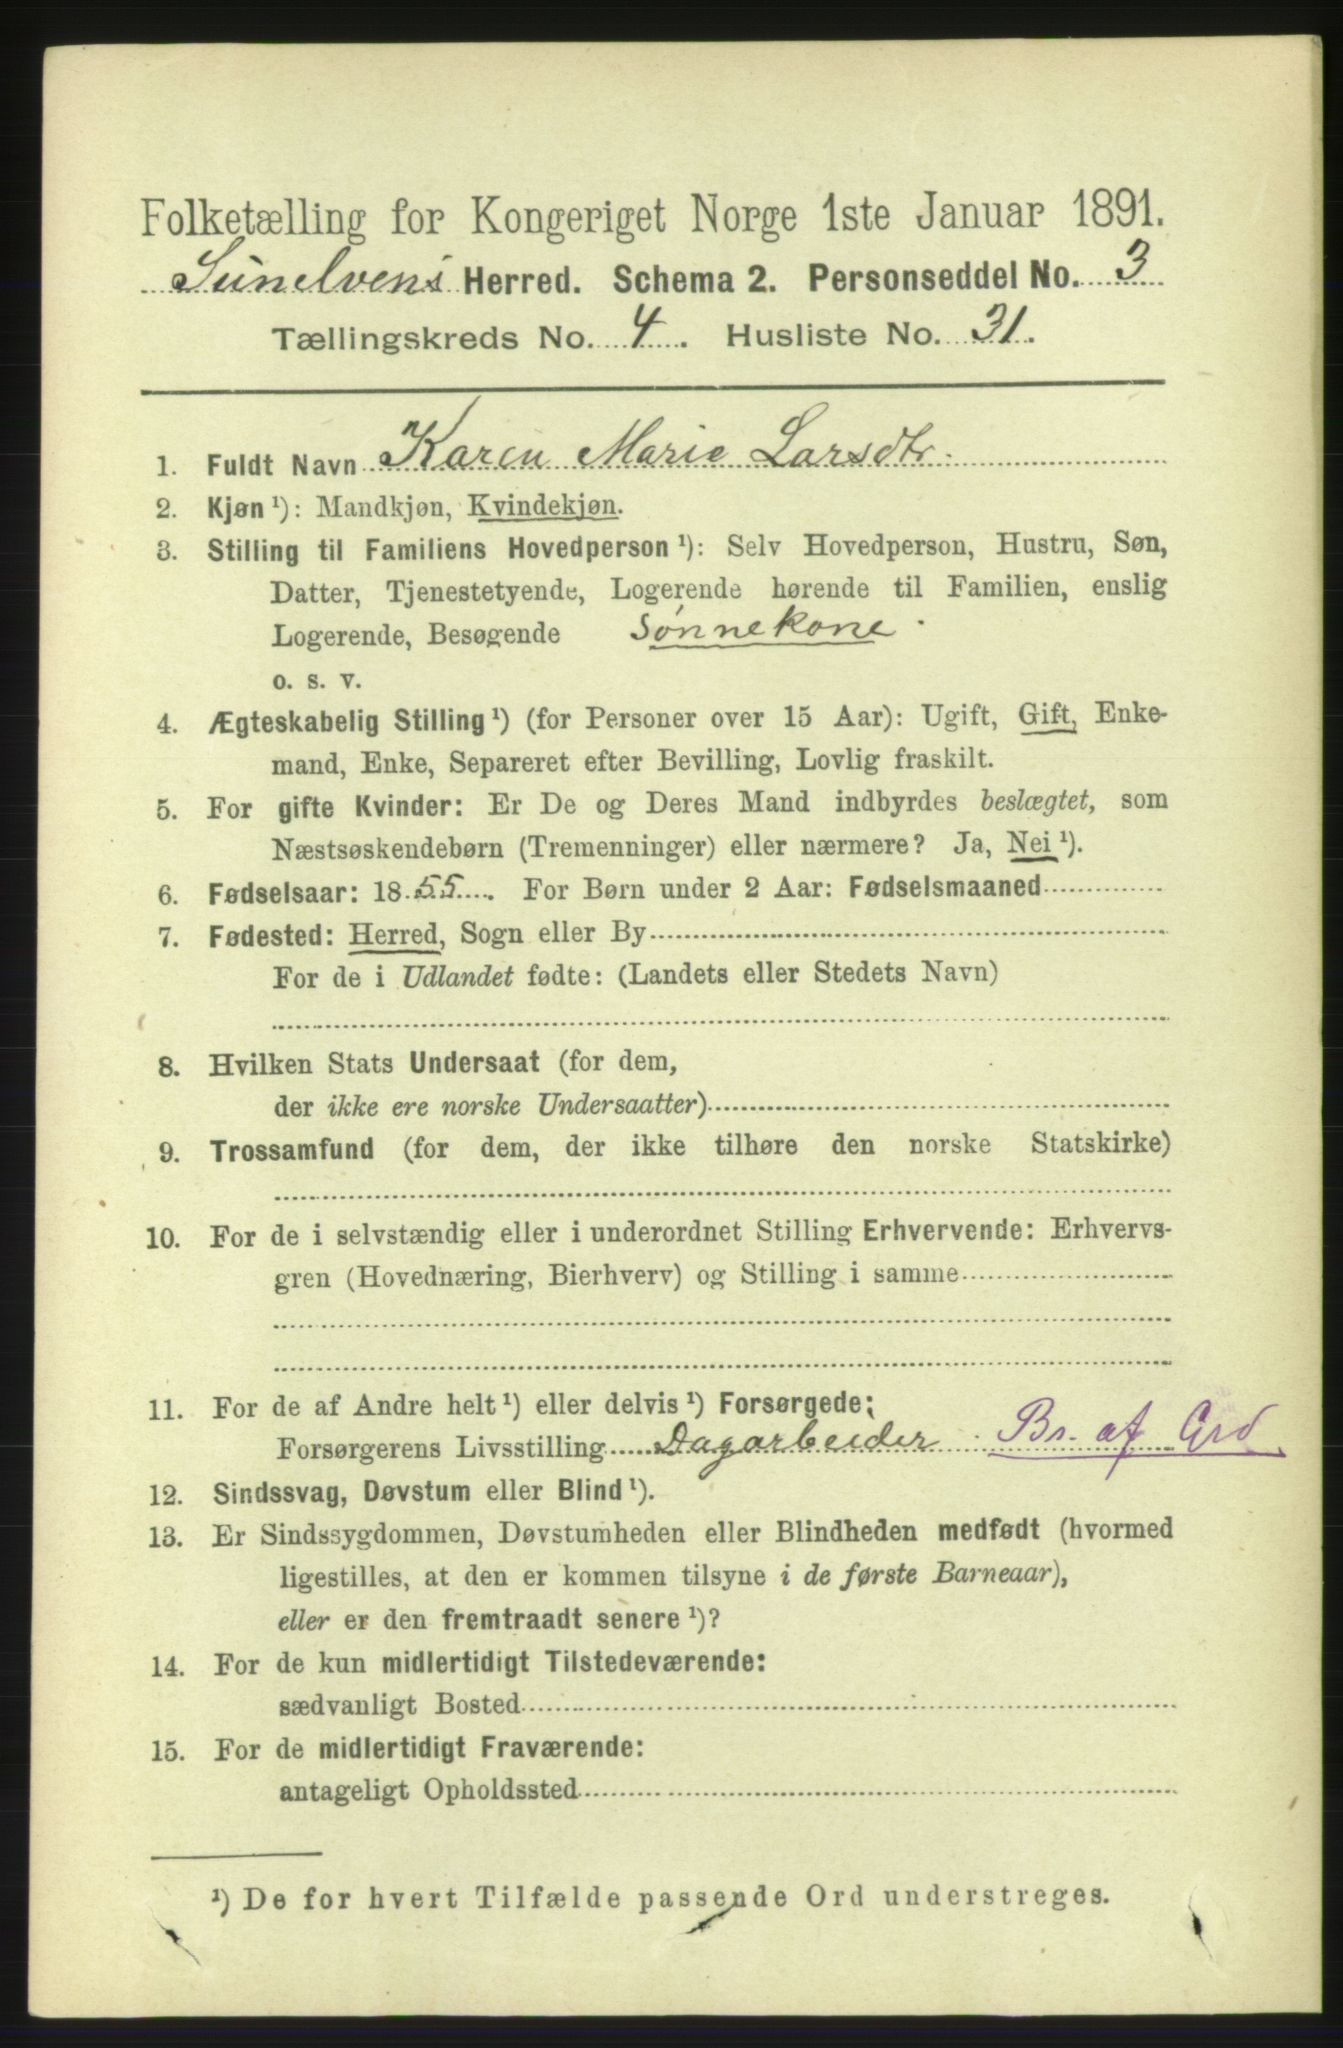 Folketælling for Kongeriget Norge 1ste Januar 1891.
Sunelvens Herred. Schema 2. Personseddel No. 3
Tællingskreds No. 4. Husliste No. 31.
1. Fuldt Navn Karen Marie Larsdtr.
2. Kjøn ¹): Mandkjøn, Kvindekjøn.
3. Stilling til Familiens Hovedperson ¹): Selv Hovedperson, Hustru, Søn,
Datter, Tjenestetyende, Logerende hørende til Familien, enslig
Logerende, Besøgende Sønnekone.
o. s. v.
4. Ægteskabelig Stilling ¹) (for Personer over 15 Aar): Ugift, Gift, Enke-
mand, Enke, Separeret efter Bevilling, Lovlig fraskilt.
5. For gifte Kvinder: Er De og Deres Mand indbyrdes beslægtet, som
Næstsøskendebørn (Tremenninger) eller nærmere? Ja, Nei ¹).
6. Fødselsaar: 1855. For Børn under 2 Aar: Fødselsmaaned
7. Fødested: Herred, Sogn eller By
For de i Udlandet fødte: (Landets eller Stedets Navn)
8. Hvilken Stats Undersaat (for dem,
der ikke ere norske Undersaatter)
9. Trossamfund (for dem, der ikke tilhøre den norske Statskirke)
10. For de i selvstændig eller i underordnet Stilling Erhvervende: Erhvervs-
gren (Hovednæring, Bierhverv) og Stilling i samme
11. For de af Andre helt ¹) eller delvis ¹) Forsørgede;
Forsørgerens Livsstilling Dagarbeider Br. af Grd
12. Sindssvag, Døvstum eller Blind ¹).
13. Er Sindssygdommen, Døvstumheden eller Blindheden medfødt (hvormed
ligestilles, at den er kommen tilsyne i de første Barneaar),
eller er den fremtraadt senere ¹)?
14. For de kun midlertidigt Tilstedeværende:
sædvanligt Bosted
15. For de midlertidigt Fraværende:
antageligt Opholdssted
¹) De for hvert Tilfælde passende Ord understreges.